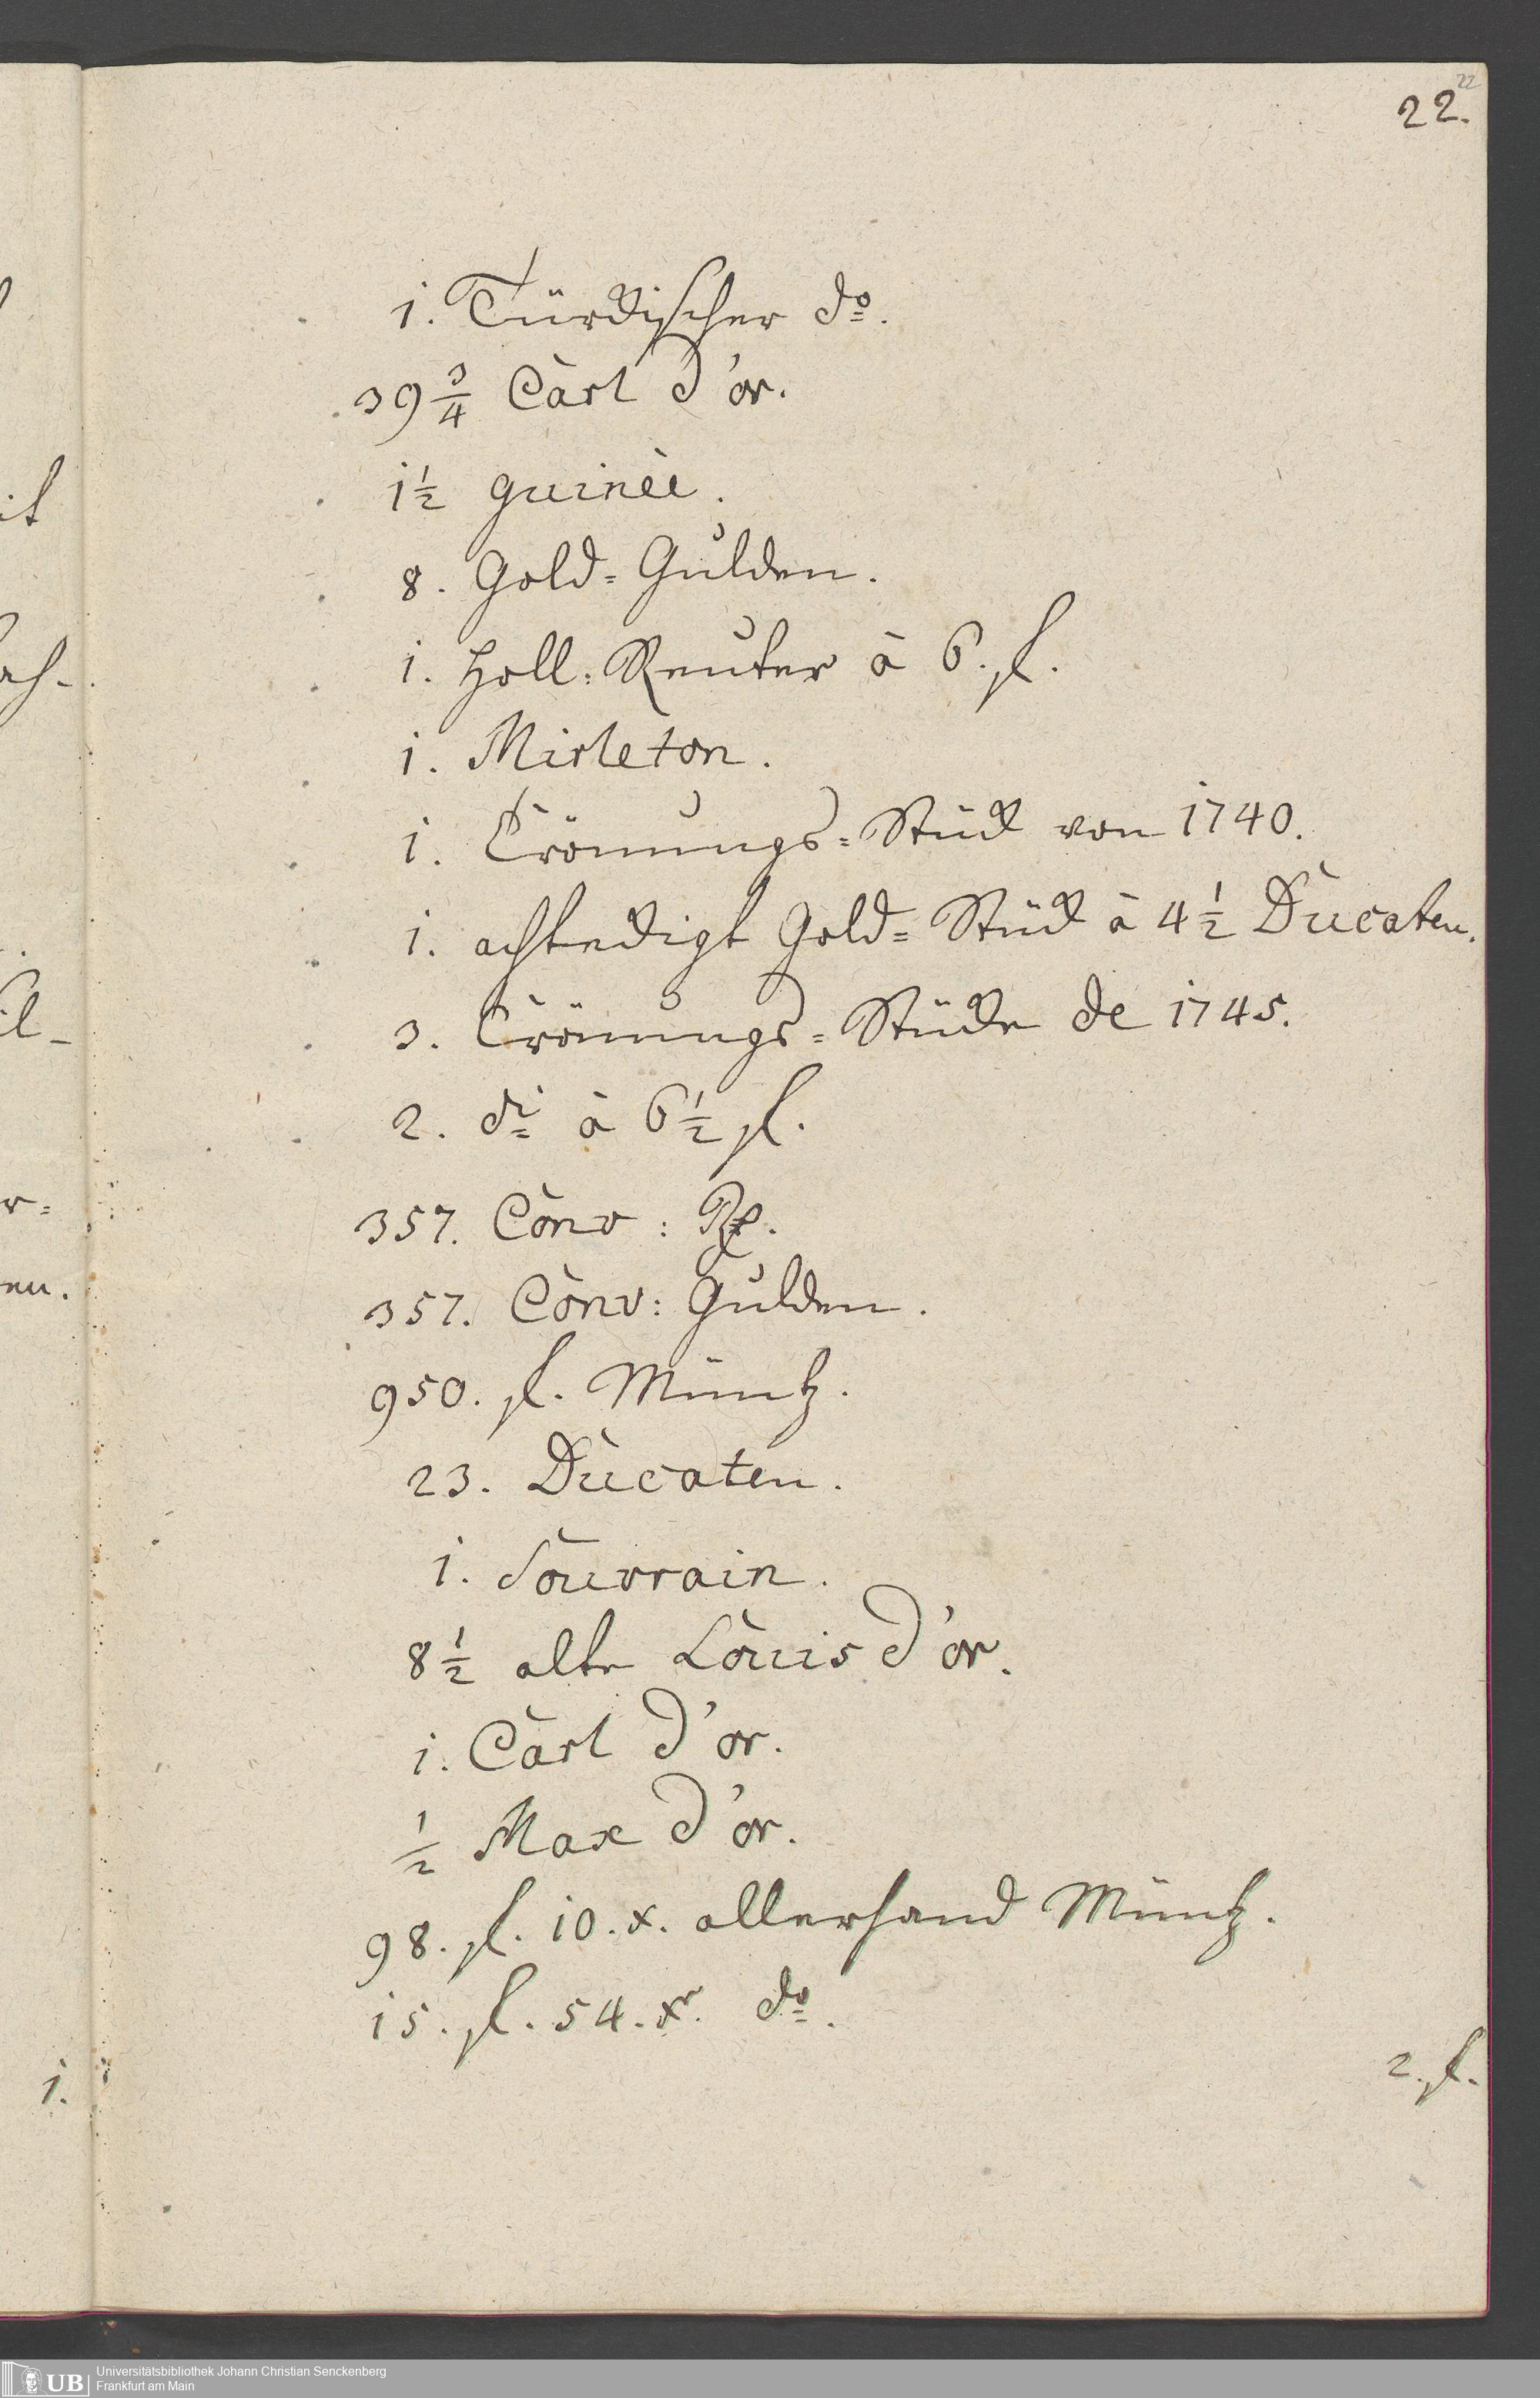 22
22.
1. Türckischer do.
39 3/4 Carl d'or.
1 1/2 guinèe.
8. Gold=Gulden.
1. Holl: Reuter à 6. fl.
1. Mirleton.
1. Crönungs=Stück von 1740.
1. achteckigt Gold=Stück à 4 1/2 Ducaten.
3. Crönungs=Stücke de 1745.
2. di à 6 1/2 fl.
357. Conv: Rl.
357. Conv: Gulden.
950. fl. Müntz.
23. Ducaten.
1. Souvrain.
8 1/2 alte Louis d'or.
1. Carl d'or.
1/2 Max d'or.
98. fl. 10. x. allerhand Müntz.
15. fl. 54. xr. do.
2. fl.
1.
UB
Universitätsbibliothek Johann Christian Senckenberg
Frankfurt am Main